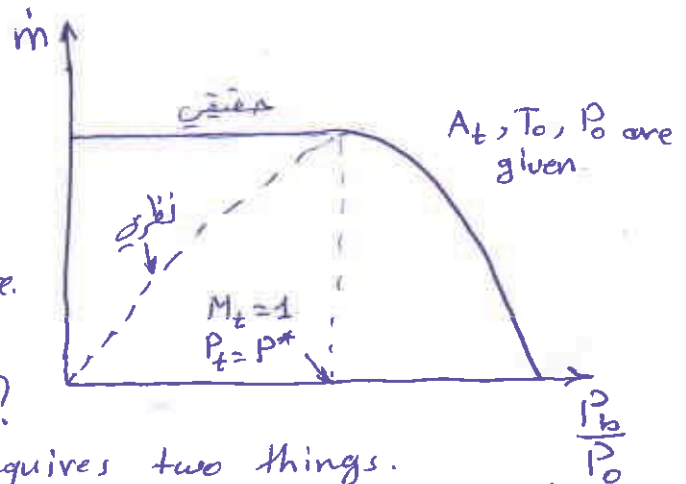 ṁ
حقیقی
A_t, T_0, P_0 are
given
نظری
e.
M_t = 1
P_t = P*
?
P_b
P_0
quires two things.